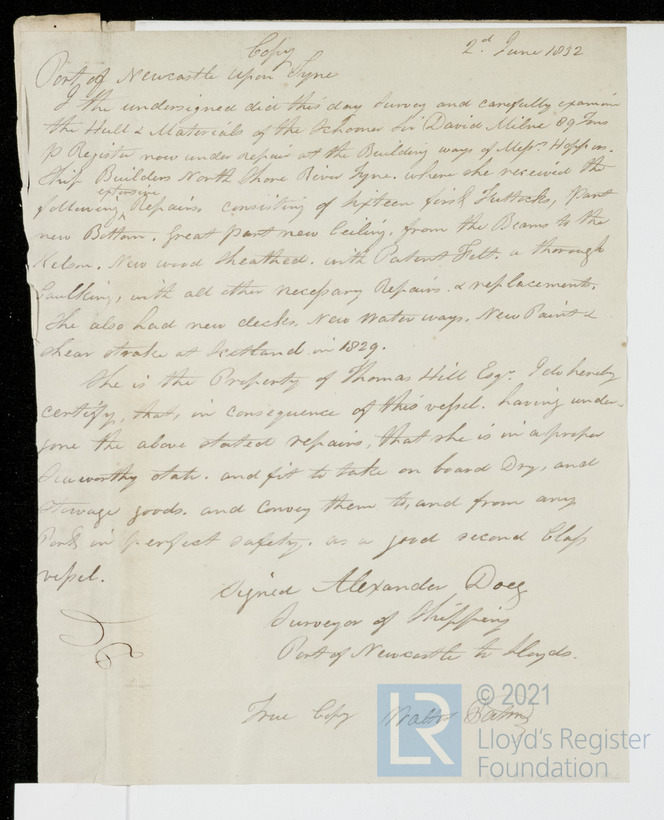 Copy
2d June 1832
Port of Newcastle Upon Tyne
I the undersigned did this day Survey and carefully examine
the Hull & Materials of the Schooner Sir David Milne 89 Tons
p Register now under repair at the Building ways of Messrs
Ship Builders North Shore River Tyne. where she received the
following extensive Repairs. consisting of fifteen first Futtocks, Part
new Bottom. Great part new Ceiling. from the Beams to the
Kelson. New wood Sheathed. with Patent Felt. a thorough
Caulking, with all other necessary Repairs. & replacements.
She also had new decks. New Water ways. New Paint &
shear strake at Scotland in 1829.
She is the Property of Thomas Hill Esqr. I do hereby
certify, that, in consequence of this vessel. having under-
gone the above stated repairs, that she is in a proper
Seaworthy state. and fit to take on board Dry, and
Stowage goods. and Convey them to, and from any
Port in perfect safety. as a good second Class
vessel.
Signed Alexander Doeg
Surveyor of Shipping
Port of Newcastle to Lloyds.
True Copy
LR
© 2021
Lloyd's Register
Foundation